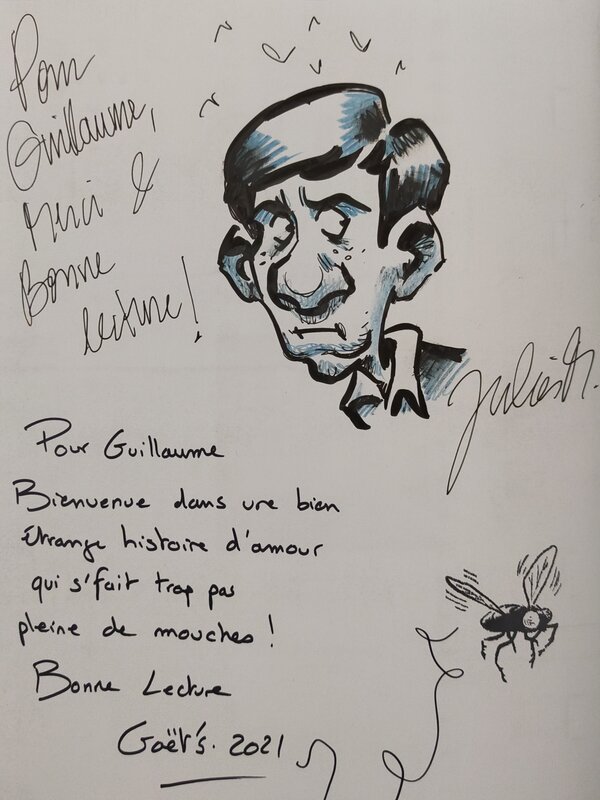 Pour
Guillaume,
Merci &
Bonne
lecture!
Julien M.
Pour Guillaume
Bienvenue dans une bien
étrange histoire d'amour
qui s'fait trop pas
pleine de mouches !
Bonne Lecture
Gaët's. 2021